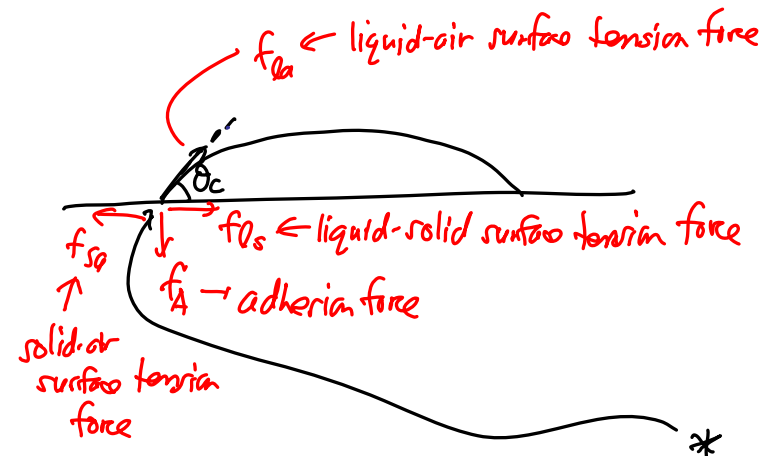 fla ← liquid-air surfac tension force
θc
fsa
fls ← liquid-solid surfac tension force
fA → adherion force
solid-air
surfac tension
force
*